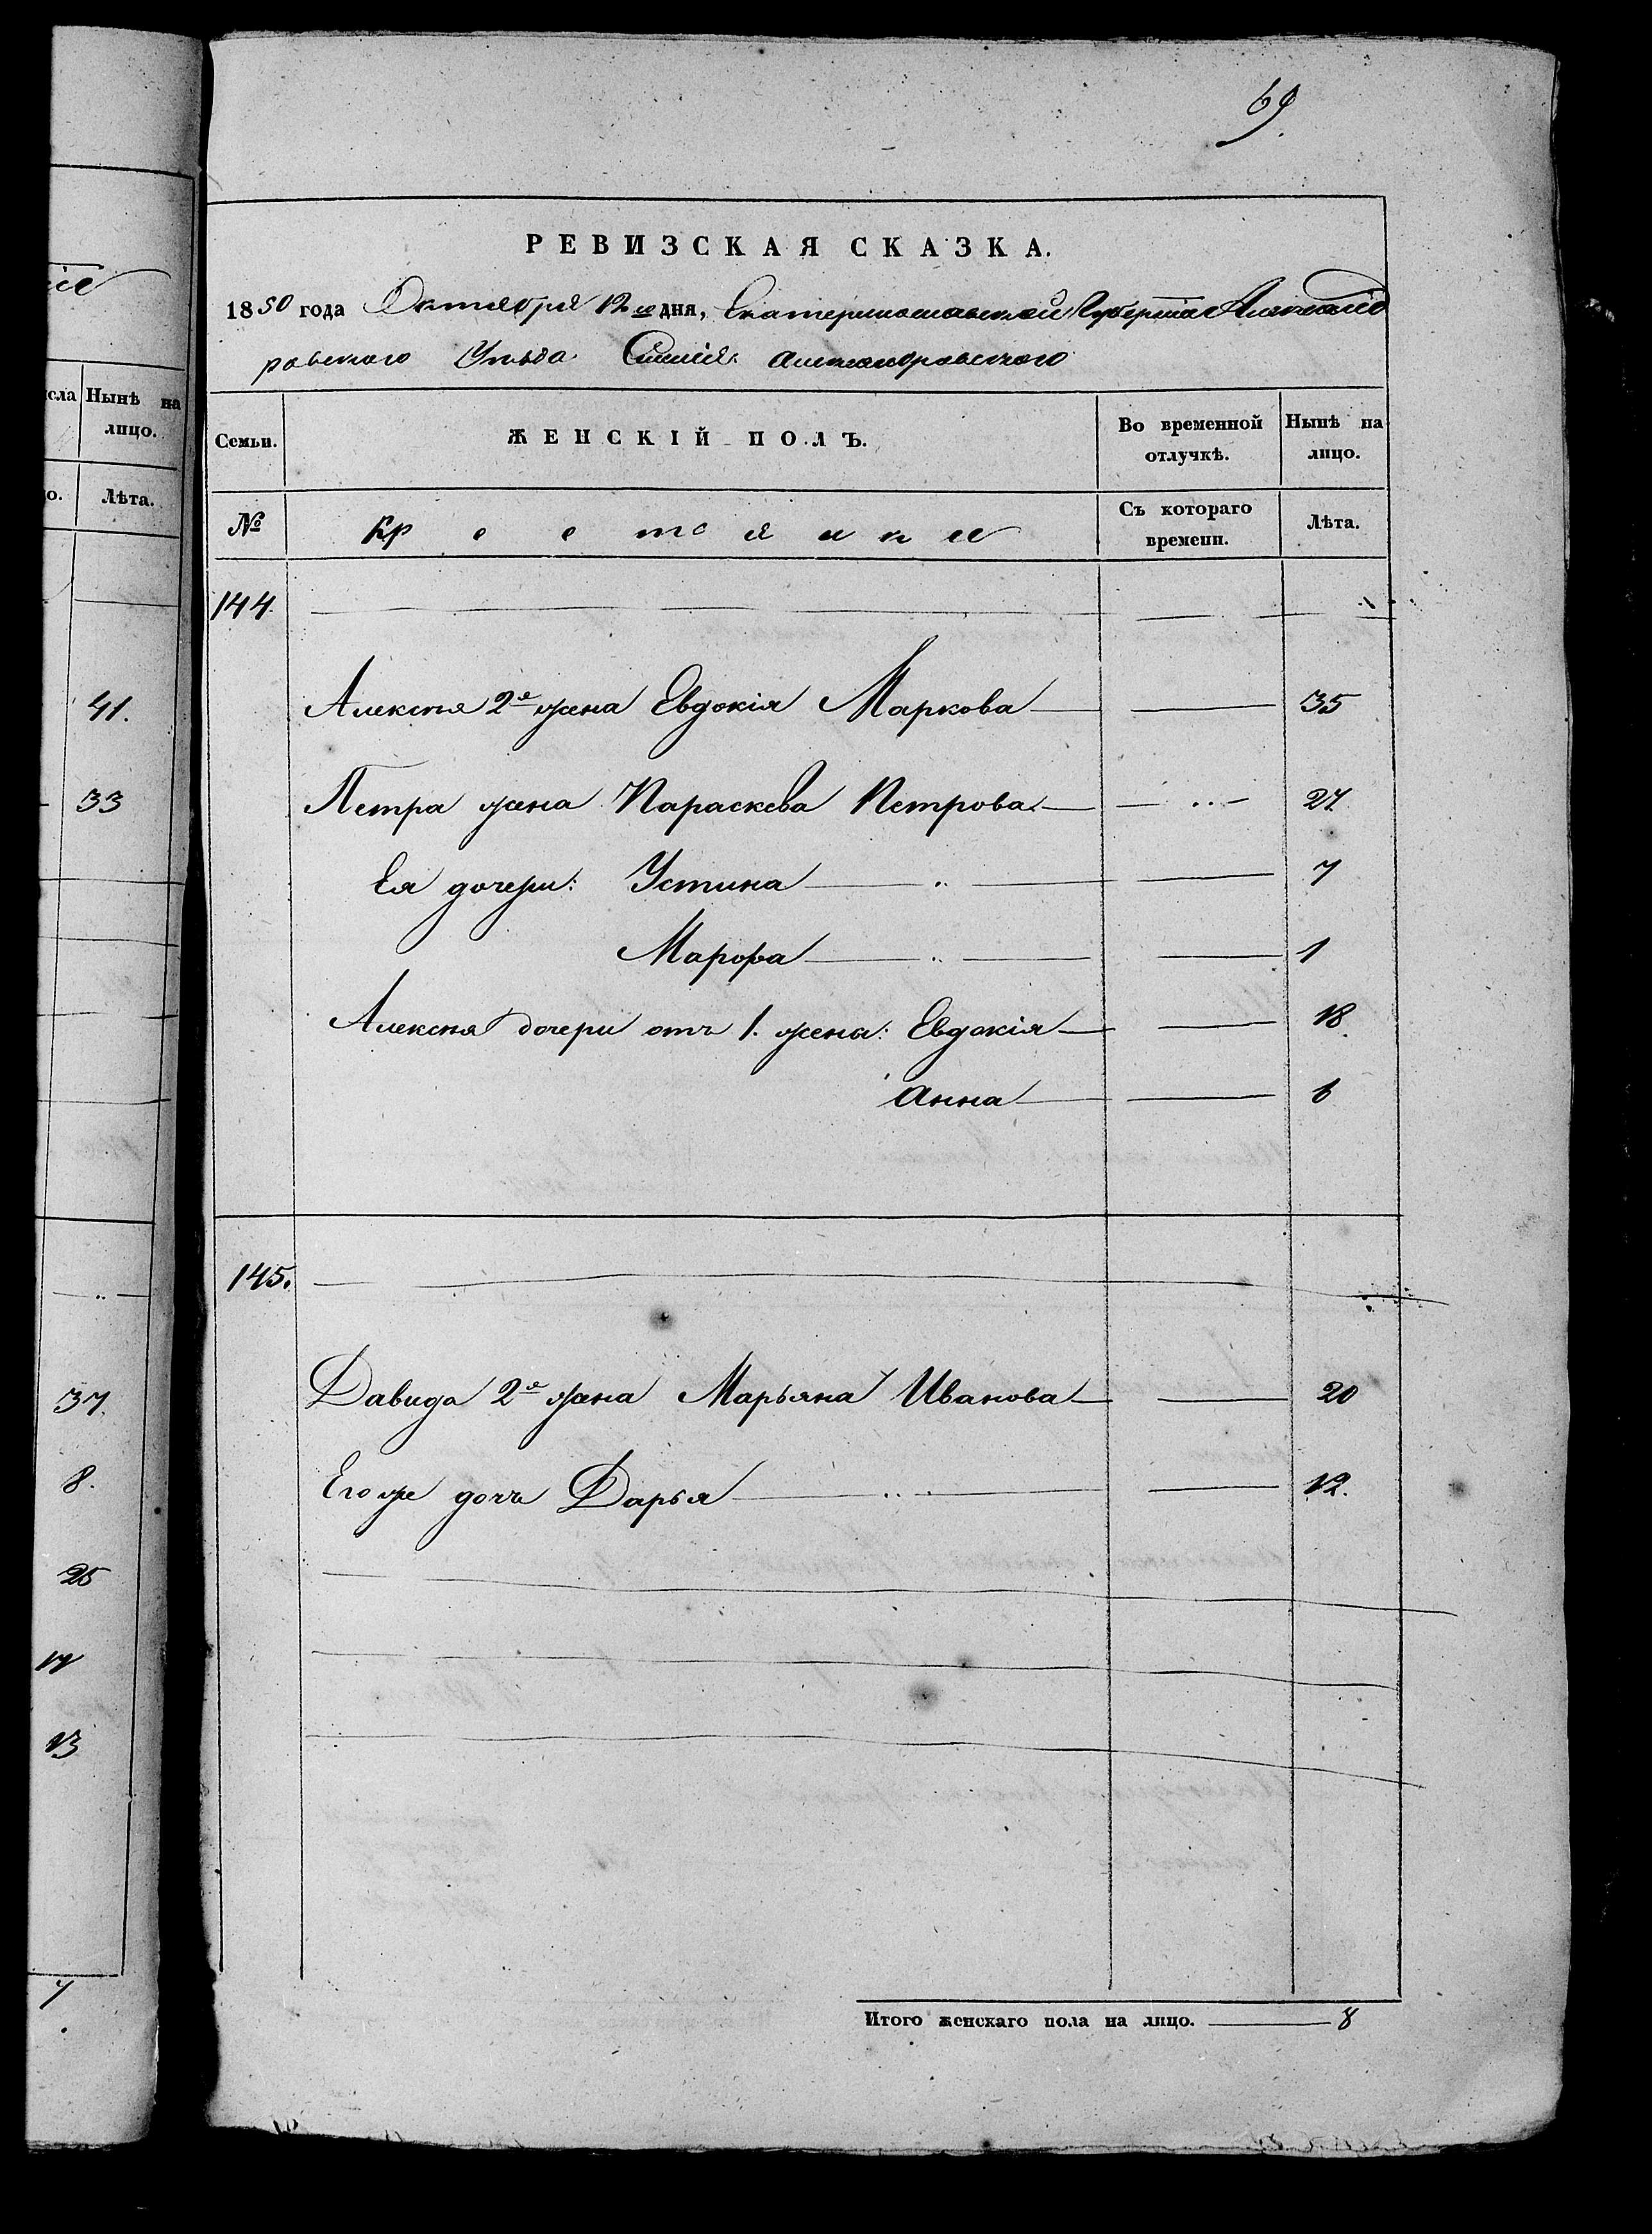 69.
ііе
сла Нынѣ на
лицо.
о. Лѣта.
41.
33
37.
8.
25
17
13
7
РЕВИЗСКАЯ СКАЗКА.
1850 года Октября 12го дня, Екатеринославской Губерніи Александ
ровского Уѣзда Селенія Александровского
Семьи. ЖЕНСКІЙ ПОЛЪ. Во временной отлучкѣ. Нынѣ на лицо.
№ Кр е с т ь я н к и Съ котораго времени. Лѣта.
144.
Алексѣя 2я жена Евдокія Маркова 35
Петра жена Параскева Петрова 27
Ея дочери: Устина 7
Марфа 1
Алексѣя дочери отъ 1. жены: Евдокія 18.
Анна 6
145.
Давида 2я жена Марьяна Иванова 20
Его же дочь Дарья 12.
Итого женскаго пола на лицо. 8